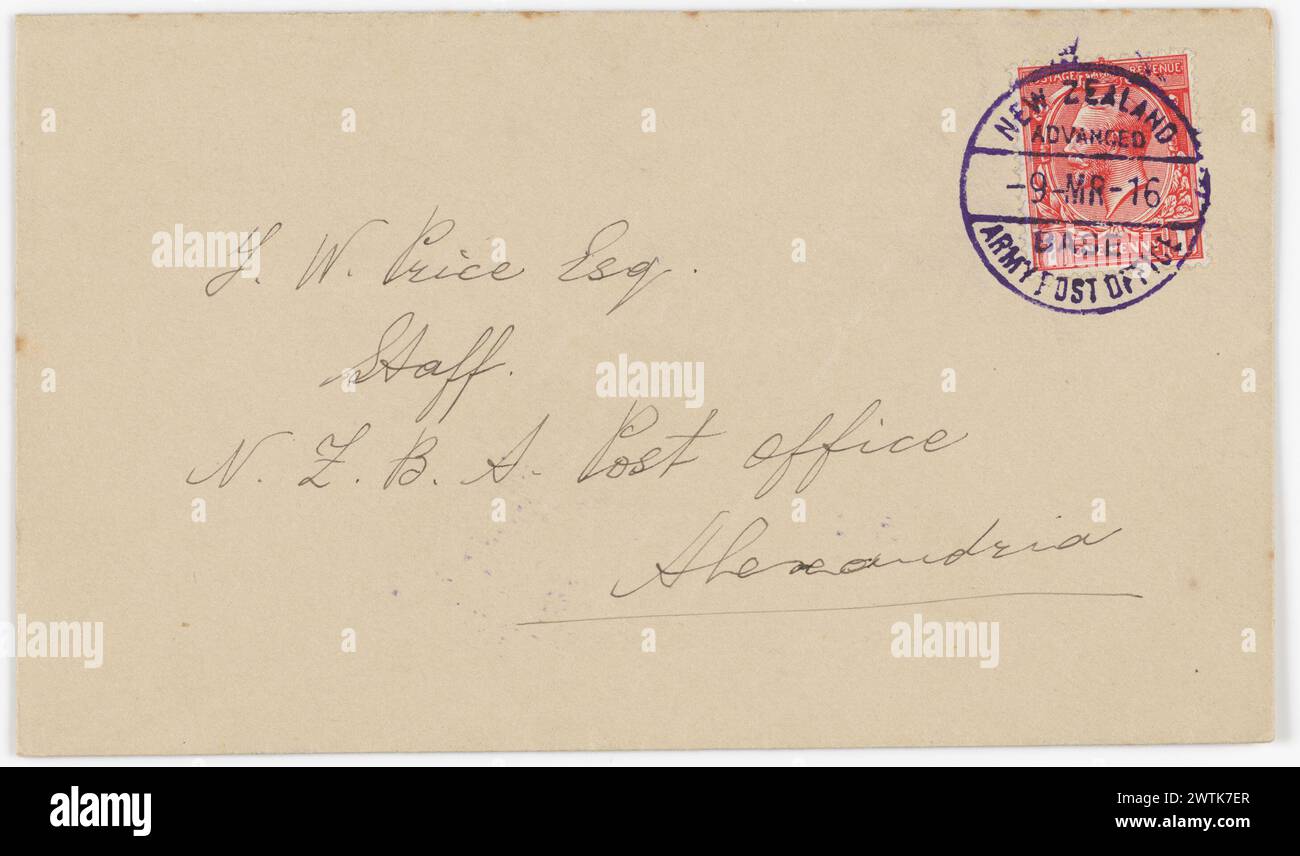 POSTAGE REVENUE
NEW ZEALAND
ADVANCED
-9-MR-16
BASE
ARMY POST OFFICE
W. Price Esq.
Staff.
N. Z. B. A. Post Office
Alexandria
alamy
alamy
Image ID: 2WTK7ER
www.alamy.com